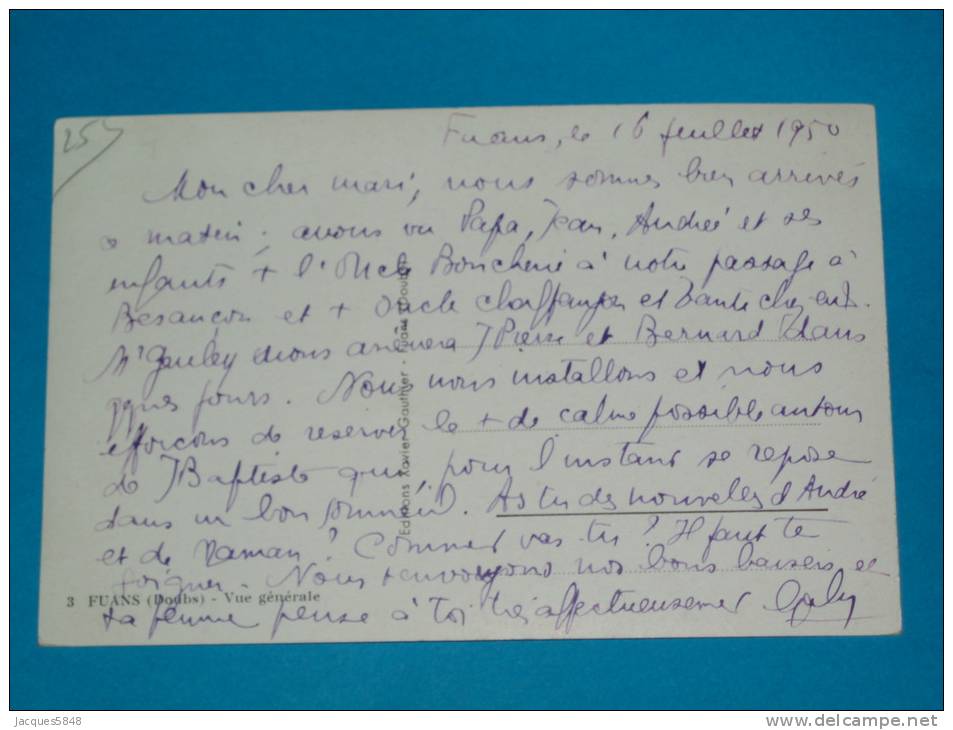 257
Fuans, le 16 juillet 1950
Mon cher mari, nous sommes bien arrivés
matin. avons vu Papa, Jean, Andrée et ses
enfants + l'Oncle à notre passage à
Besançon et + Oncle et Tante
Mr JPierre et Bernard dans
qques jours. Nous nous installons et nous
efforçons de réserver le + de calme possible autour
de JBaptiste qui, pour l'instant se repose
dans un bon sommeil. As tu des nouvelles d'André
et de Maman? Comment vas tu? Il faut te
soigner. Nous t'envoyons nos bons baisers et
ta femme pense à toi très affectueusement
3 FUANS (Doubs) - Vue générale
Editions Xavier Gauthier - Fuans (Doubs)
Jacques5848
www.delcampe.net